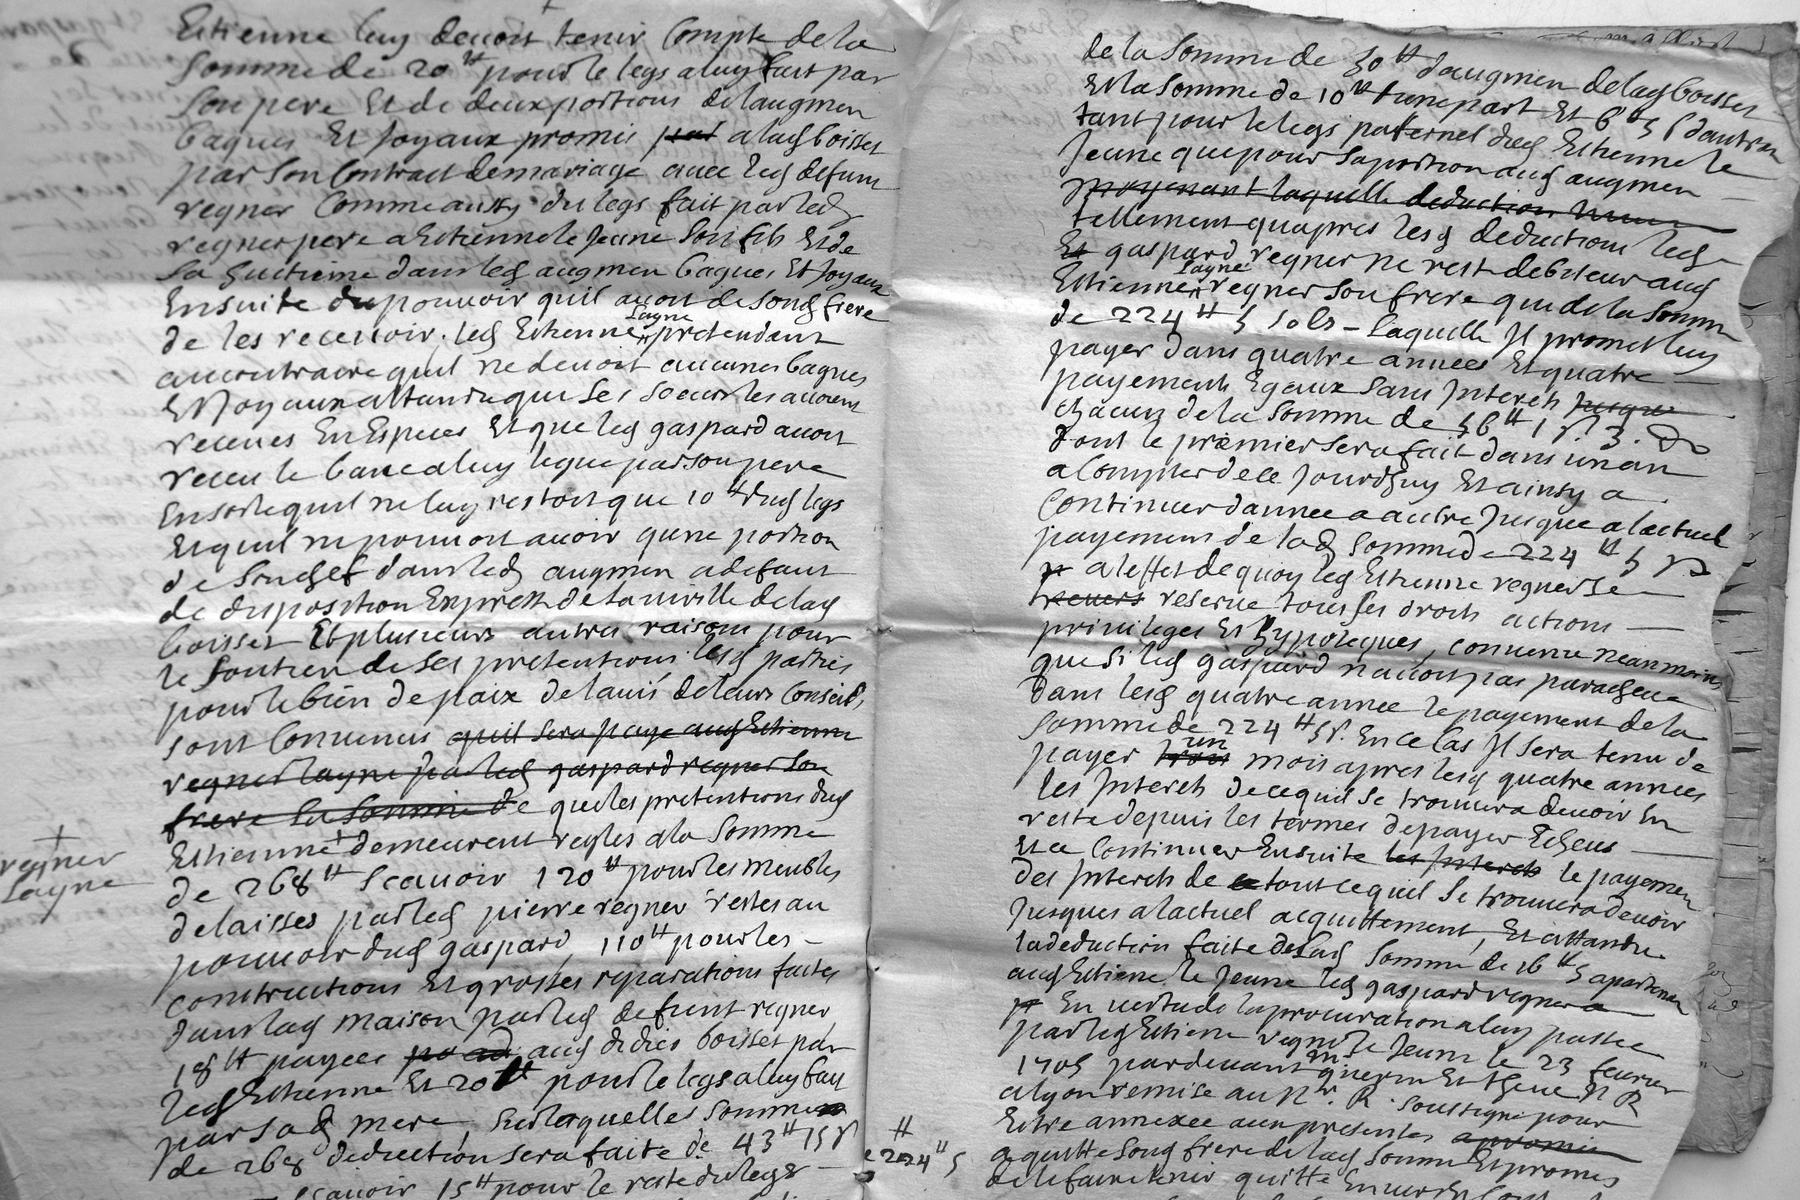 Estienne luy devoit tenir Compte de la
Somme de 20 tt pour le legs a luy fait par
Son pere Et de deux portions de laugmen
bagues Et Joyaux promis par a lad boisset
par Son Contract de mariage avec led defunt
regner Comme aussy du legs fait par led
regner pere a Estienne le Jeune Son fils Et de
la Sienne dans led augmen bagues Et Joyaux
Ensuite du pouvoir quil avoit de Sond frere
de les recevoir. led Estienne Layne pretendant
au contraire quil ne devoit aucunes bagues
Et Joyaux attandu que Ses Soeurs les avoient
receues En Especes Et que led gaspard avoit
receu le banc a luy legue par son pere
En sorte quil ne luy restoit que 10 tt dud legs
Et quil ne pouvoit avoir qune portion
de Son chef dans led augmen a defaut
de disposition Expresse de la de lad
boisset Et plusieurs autres raisons pour
le Soutien de Ses pretentions lesd parties
pour le bien de paix de lavis de leurs Conseils
sont Convenus quil Sera paye aud Estienne
regner layne par led gaspard regner Son
frere la Somme de que les pretentions dud
Estienne + demeurent regles a la Somme
+
regner
Layne
de 268 tt Scavoir 120 tt pour les meubles
delaisses par led pierre regner restes au
pouvoir dud gaspard, 110 tt pour les -
constructions Et grosses reparations faites
dans lad maison par led defunt regner
18 tt payees aud didier boisset par
led Estienne Et 20 tt pour le legs a luy fait
par sad mere, Sur laquelle Somme
de 268 deduction sera faite de 43 tt 15 s
Scavoir 15 tt pour le reste du legs -
tt
224 tt 5
de la Somme de 30 tt daugmen de lad boisset
Et la Somme de 10 tt dune part Et 6 tt 5 s dautre
tant pour le legs paternel dud Estienne le
Jeune que pour Sa portion aud augmen
moyenant laquelle deduction
tellement quapres lesd deductions led
Et gaspard regner ne reste debiteur aud
Estienne Layne regner Son frere que de la Somme
de 224 tt 5 sols - laquelle Il promet luy
payer dans quatre annees Et quatre -
payements Egaux Sans Interets Jusque
chacun de la Somme de 56 tt 1 s 3. d
dont le premier sera fait dans un an
a Compter de ce Jourdhuy Et ainsy a
Continuer dannee a autre Jusque a lactuel
payement de lad Somme de 224 tt 5 s
a leffet de quoy led Estienne regner Se
reserve tous Ses droits actions -
privileges Et hypoteques, convenu neanmoins
que Si led gaspard navoit pas paracheve
dans lesd quatre annee le payement de la
Somme de 224 tt 5 s. En ce Cas Il Sera tenu de
payer trois un mois apres lesd quatre annees
les Interets de ce quil Se trouvera devoir En
reste depuis les termes de payer Echeus -
Et a Continuer Ensuite les Interets le payemen
des Interets de tout ce quil Se trouvera devoir
Jusques a lactuel acquittement, Et attandu
la deduction faite de lad Somme de 16 tt 5 apartenan
aud Estienne le Jeune led gaspard regner a
En vertu de la procuration a luy passee
par led Estienne regner le Jeune le 23 fevrier
1705 pardevant me guerin Et N R
a lyon remise au Nre. R. Soussigne pour
Estre annexee aux presentes
a quitte Sond frere de lad Somme Et promis
de le faire tenir quitte